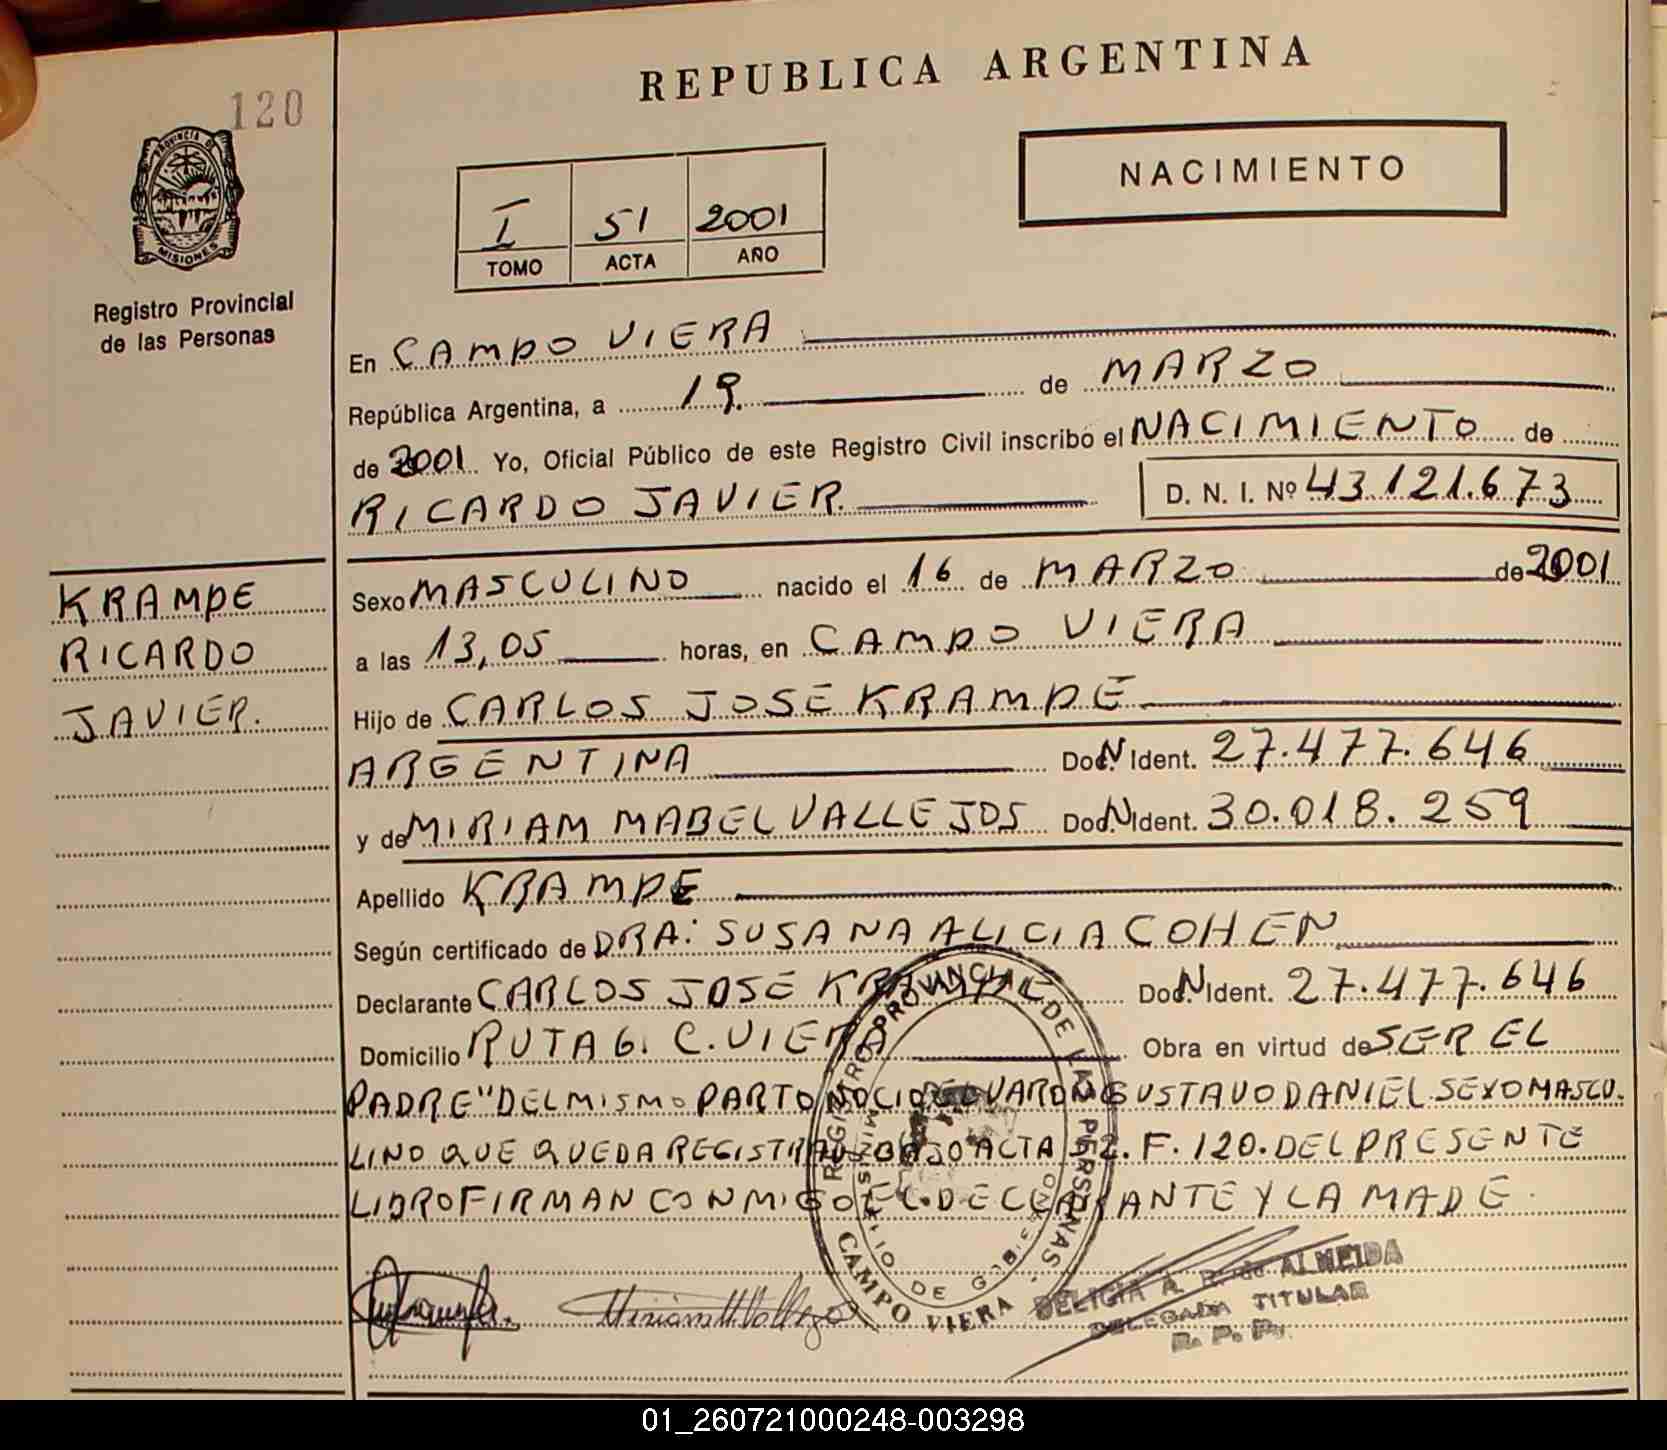 120
REPUBLICA ARGENTINA
PROVINCIA DE
MISIONES
NACIMIENTO
I 51 2001
TOMO ACTA AÑO
Registro Provincial
de las Personas
En CAMPO VIERA
República Argentina, a 19. de MARZO
de 2001 Yo, Oficial Público de este Registro Civil inscribo el NACIMIENTO de
RICARDO JAVIER. D. N. I. Nº 43.121.673
KRAMPE
RICARDO
JAVIER.
Sexo MASCULINO nacido el 16 de MARZO de 2001
a las 13,05 horas, en CAMPO VIERA
Hijo de CARLOS JOSE KRAMPE
ARGENTINA Doc.N Ident. 27.477.646
y de MIRIAM MABEL VALLEJOS Doc.N Ident. 30.018.259
Apellido KRAMPE
Según certificado de DRA: SUSANA ALICIA COHEN
Declarante CARLOS JOSE KRAMPE Doc.N Ident. 27.477.646
Domicilio RUTA 6. C. VIERA Obra en virtud de SER EL
PADRE" DEL MISMO PARTO NACIO EL VARON GUSTAVO DANIEL. SEXO MASCU.
LINO QUE QUEDA REGISTRADO BAJO ACTA 52. F. 120. DEL PRESENTE
LIBRO FIRMAN CONMIGO EL DECLARANTE Y LA MADE.
REGISTRO PROVINCIAL DE LAS PERSONAS
MINISTERIO DE GOBIERNO
CAMPO VIERA
Miriam M Vallejo
ALMEIDA
DELEGADA TITULAR
R. P. P.
01_260721000248-003298